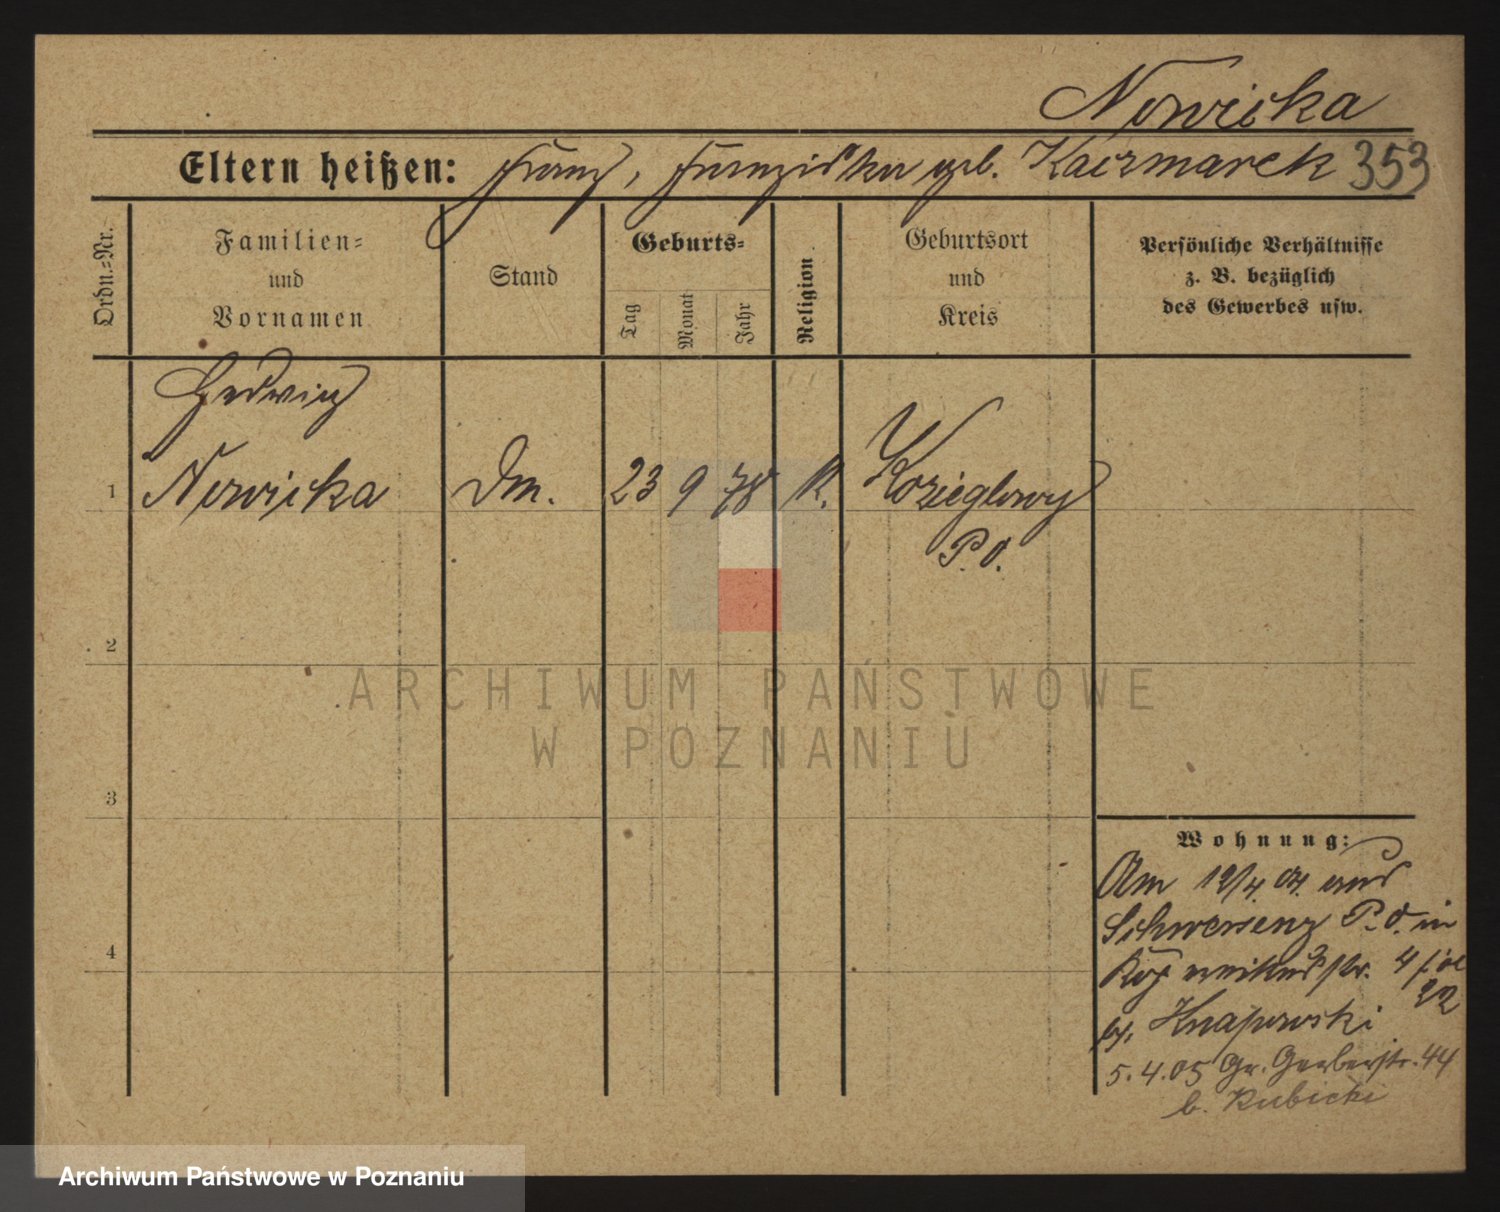 Nowicka
Eltern heißen: Franz, Franziska geb. Kaczmarek 353
Ordn.-Nr.
Familien-
und
Vornamen
Stand
Geburts-
Tag
Monat
Jahr
Religion
Geburtsort
und
Kreis
Persönliche Verhältnisse
z. B. bezüglich
des Gewerbes usw.
Hedwig
1 Nowicka Dm. 23 9 78 K. Kozieglowy
P. O.
2
ARCHIWUM PAŃSTWOWE
W POZNANIU
3
Wohnung:
Am 12/4. 04. aus
Schwersenz P. O. in
4
str. 4
22
b. Knapowski
5. 4. 05 Gr. Gerberstr. 44
b. Rubicki
Archiwum Państwowe w Poznaniu